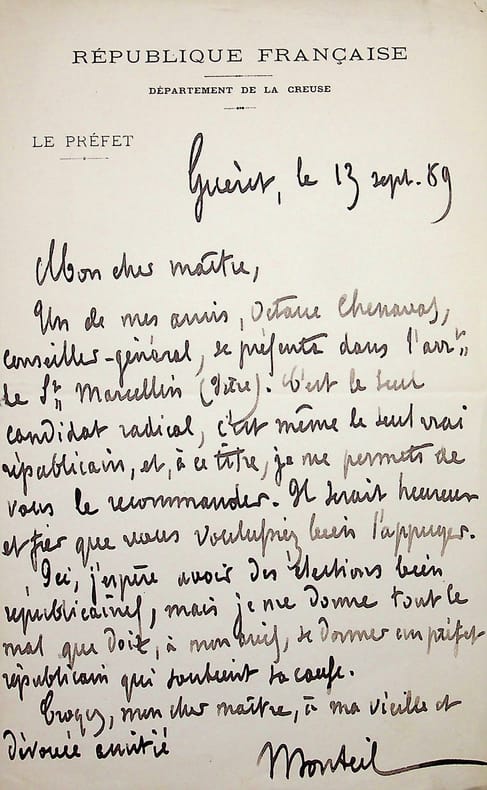 RÉPUBLIQUE FRANÇAISE
DÉPARTEMENT DE LA CREUSE
LE PRÉFET
Guéret, le 13 sept. 89
Mon cher maître,
Un de mes amis, Octave Chenavas,
conseiller-général, se présente dans l'arrt
de St Marcellin (Isère). C'est le seul
candidat radical, c'est même le seul vrai
républicain, et, à ce titre, je me permets de
vous le recommander. Il serait heureux
et fier que vous voulussiez bien l'appuyer.
Ici, j'espère avoir des élections bien
républicaines, mais je me donne tout le
mal que doit, à mon avis, se donner un préfet
républicain qui soutient sa cause.
Croyez, mon cher maître, à ma vieille et
dévouée amitié
Monteil